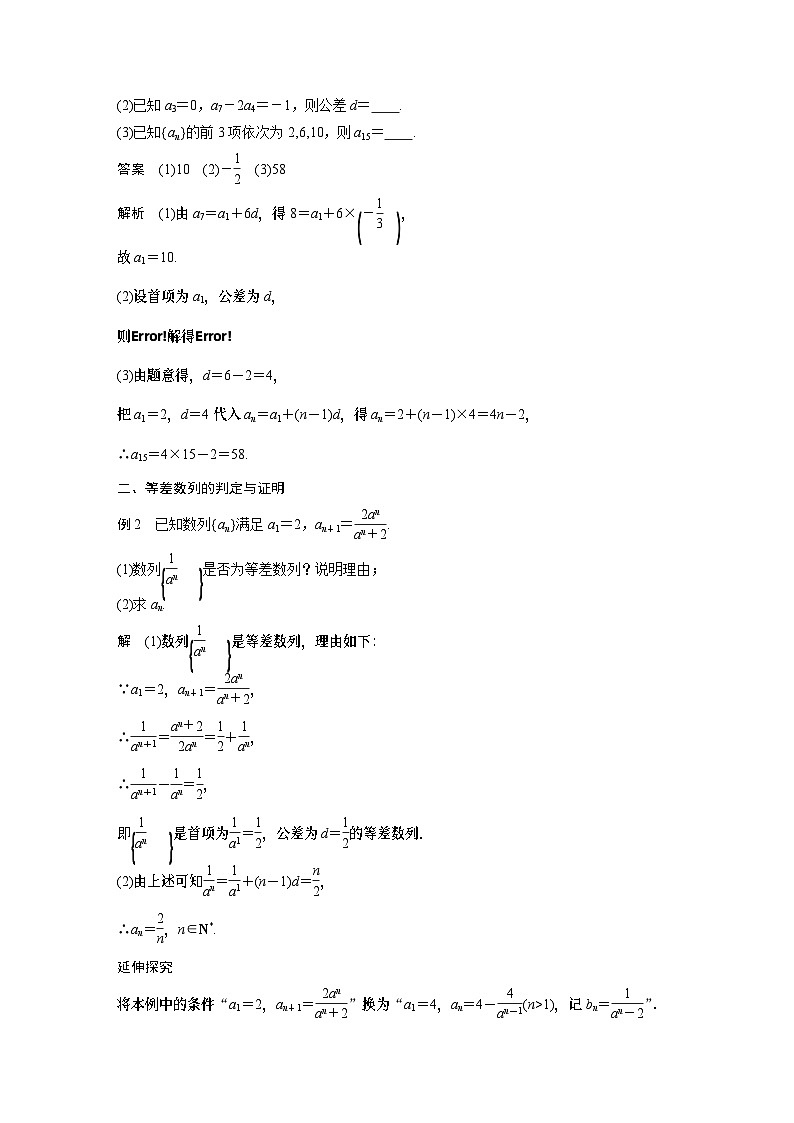 (2)已知 a₃＝0，a₇－2a₄＝－1，则公差 d＝____.
(3)已知{aₙ}的前 3 项依次为 2,6,10，则 a₁₅＝____.
答案　(1)10　(2)－1/2　(3)58
解析　(1)由 a₇＝a₁＋6d，得 8＝a₁＋6×(－1/3)，
故 a₁＝10.
(2)设首项为 a₁，公差为 d，
则Error!解得Error!
(3)由题意得，d＝6－2＝4，
把 a₁＝2，d＝4 代入 aₙ＝a₁＋(n－1)d，得 aₙ＝2＋(n－1)×4＝4n－2，
∴a₁₅＝4×15－2＝58.
二、等差数列的判定与证明
例 2　已知数列{aₙ}满足 a₁＝2，aₙ₊₁＝2aⁿ/(aⁿ＋2).
(1)数列{1/aⁿ}是否为等差数列？说明理由；
(2)求 aₙ.
解　(1)数列{1/aⁿ}是等差数列，理由如下：
∵a₁＝2，aₙ₊₁＝2aⁿ/(aⁿ＋2)，
∴1/aⁿ⁺¹＝(aⁿ＋2)/2aⁿ＝1/2＋1/aⁿ，
∴1/aⁿ⁺¹－1/aⁿ＝1/2，
即{1/aⁿ}是首项为1/a¹＝1/2，公差为 d＝1/2的等差数列.
(2)由上述可知1/aⁿ＝1/a¹＋(n－1)d＝n/2，
∴aₙ＝2/n，n∈N*.
延伸探究
将本例中的条件“a₁＝2，aₙ₊₁＝2aⁿ/(aⁿ＋2)”换为“a₁＝4，aₙ＝4－4/aⁿ⁻¹(n>1)，记 bₙ＝1/(aⁿ－2)”.